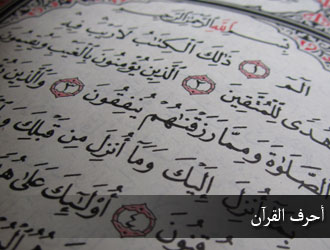 بِسْمِ اللَّهِ الرَّحْمَٰنِ الرَّحِيمِ
الٓمٓ ١ ذَٰلِكَ الْكِتَٰبُ لَا رَيْبَ فِيهِ
هُدًى لِّلْمُتَّقِينَ ٢ الَّذِينَ يُؤْمِنُونَ بِالْغَيْبِ وَيُقِيمُونَ
الصَّلَوٰةَ وَمِمَّا رَزَقْنَٰهُمْ يُنفِقُونَ ٣ وَالَّذِينَ
يُؤْمِنُونَ أُنزِلَ إِلَيْكَ وَمَا أُنزِلَ مِن قَبْلِكَ
يُوقِنُونَ ٤ أُو۟لَٰٓئِكَ عَلَىٰ هُدًى
أحرف القرآن